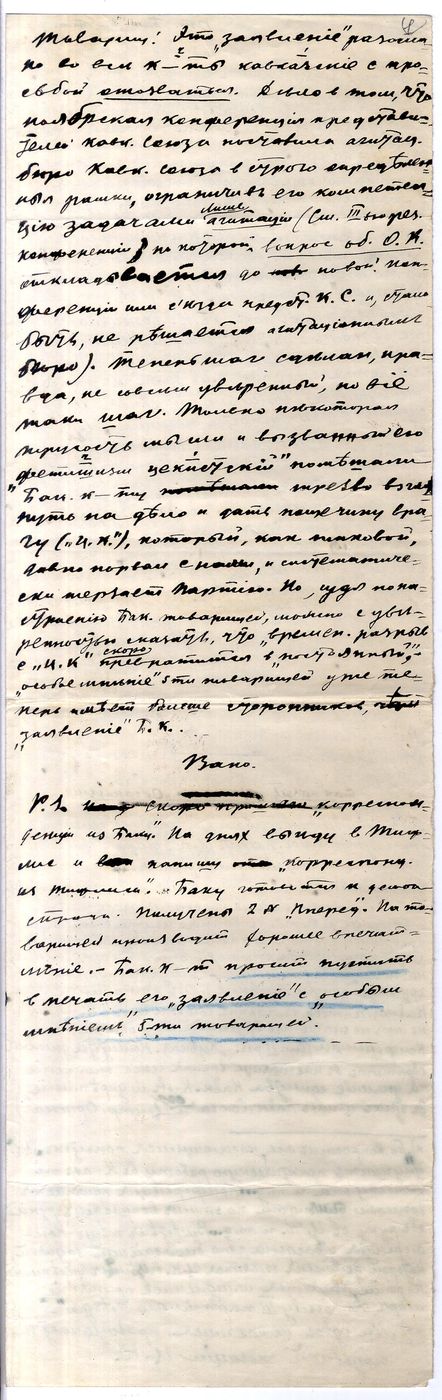 Товарищ! Это "заявленіе" разосла-
но во все к-ты кавказскіе с про-
сьбой отозваться. Дѣло в том, что
ноябрская конференція представи-
телей кавк. союза поставила агитац.
бюро Кавк. союза в строго опредѣлен-
ныя рамки, ограничивъ его компетен-
цію задачами лишь агитаціи (См. III-ью рез.
конференціи, по которой вопрос об О. К.
откладывается до новой кон-
ференціи или съѣзда предст. К. С. и, стало
быть, не рѣшается агитаціонным
бюро). Теперь шаг сдѣлан, пра-
вда, не совсем увѣренный, но всё
таки шаг. Только нѣкоторая
трусость мысли и вызванный его
"фетишизм цекистскій" помѣшали
Бак. к-ту трезво взгля-
нуть на дѣло и дать пощечину вра-
гу ("Ц. К."), который, как таковой,
давно порвал с нами, и системaтиче-
ски терзает партію. Но, судя по на-
строенію Бак. товарищей, можно с увѣ-
ренностью сказать, что "времен. разрыв
с "Ц. К" скоро превратится в "постоянный",-
"особое мнѣніе" 6-ти товарищей уже те-
перь имѣет больше сторонников, чѣм
"заявленіе" Б. К.
Вано.
P. S. "корреспон-
денція из Баку". На днях выѣду в Тиф-
лис и напишу "корреспонд.
из Тифлиса". Баку готовится к демон-
страціи. Получены 2 № "Вперед". На то-
варищей производит хорошее впечат-
лѣніе. - Бак. к-т просит пустить
в печать его "заявленіе" с "особым
мнѣніем" 6-ти товарищей".